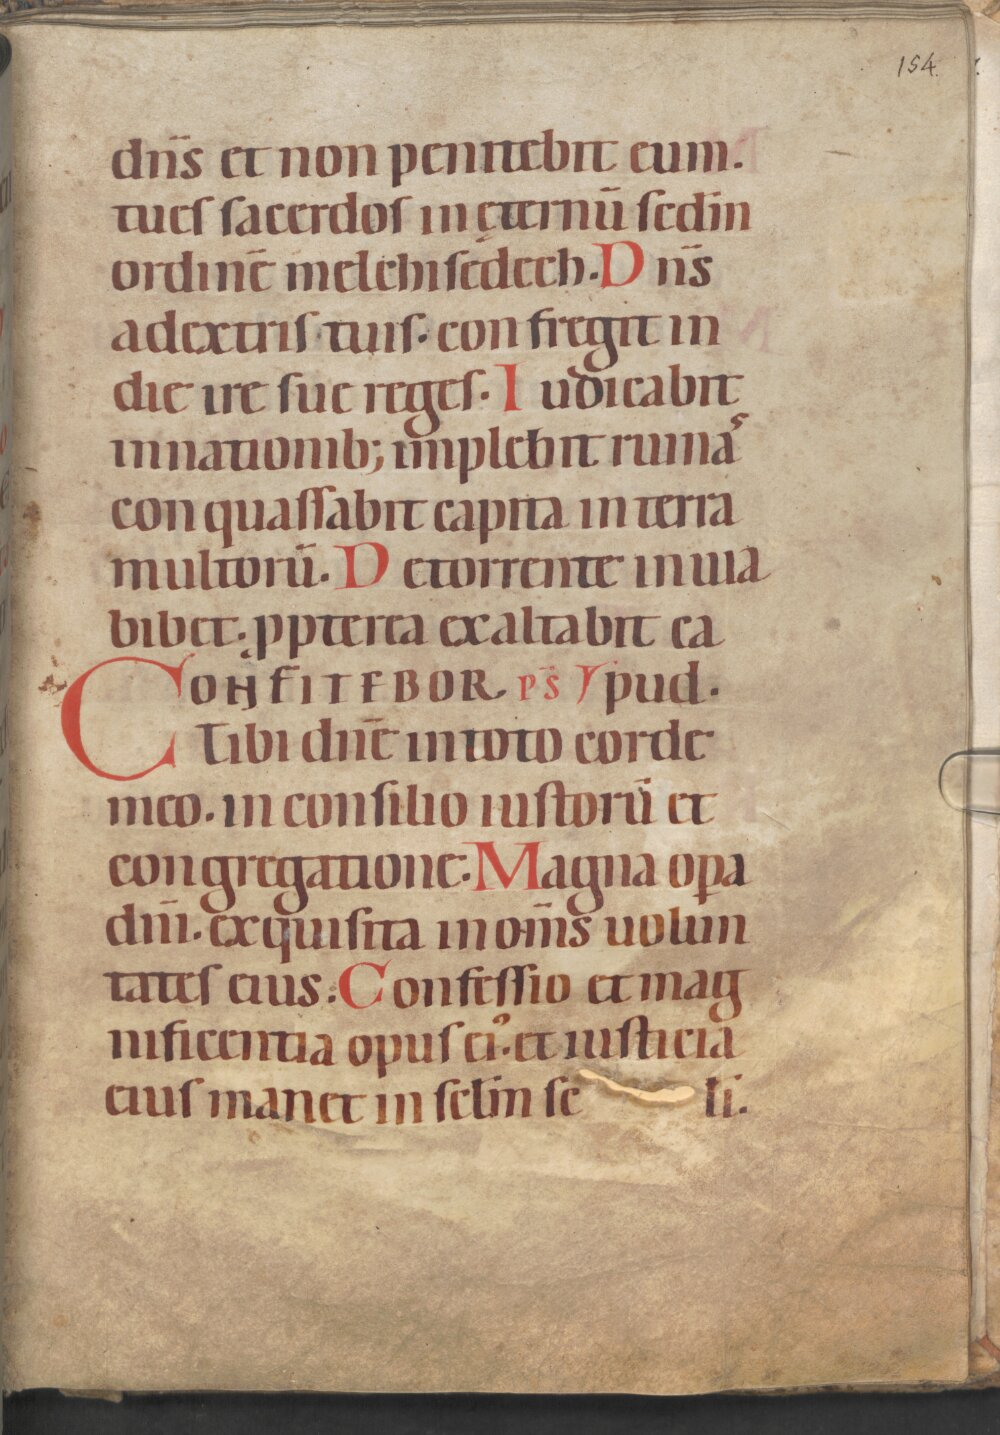 154.
dn̄s et non penitebit eum.
tu es sacerdos in ęternū scd̄m
ordinē melchisedech. Dn̄s
a dextris tuis. confregit in
die ire sue reges. Iudicabit
in nationib; implebit ruinaˢ
conquassabit capita in terra
multorū. De torrente in uia
bibet. ꝓpterea exaltabit ca
CONFITEBOR. ps̄ ꝩ pud.
Tibi dn̄e in toto corde
meo. in consilio iustorū et
congregatione. Magna oꝑa
dn̄i. exquisita in om̄s uolun
tates eius. Confessio et mag
nificentia opus ei᾽. et iusticia
eius manet in sc̄lm se li.